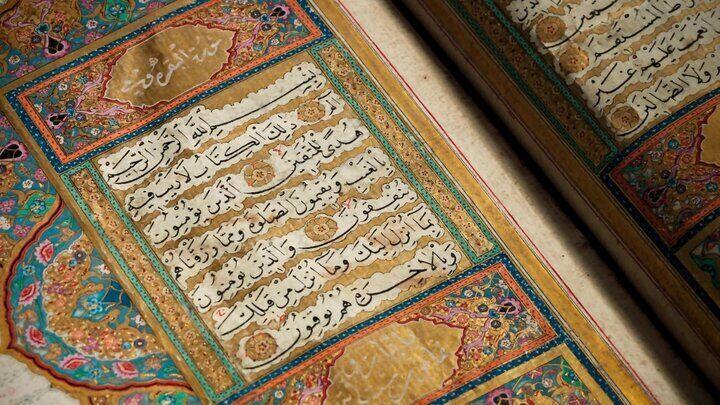 المستقيم
عليهم غير
ولا الضالين
بسم الله الرحمن الرحيم
الم ذلك الكتاب لا ريب فيه
هدى للمتقين الذين يؤمنون
بالغيب ويقيمون الصلوة ومما رزقناهم
ينفقون والذين يؤمنون
بما انزل اليك وما انزل من قبلك
وبالاخرة هم يوقنون